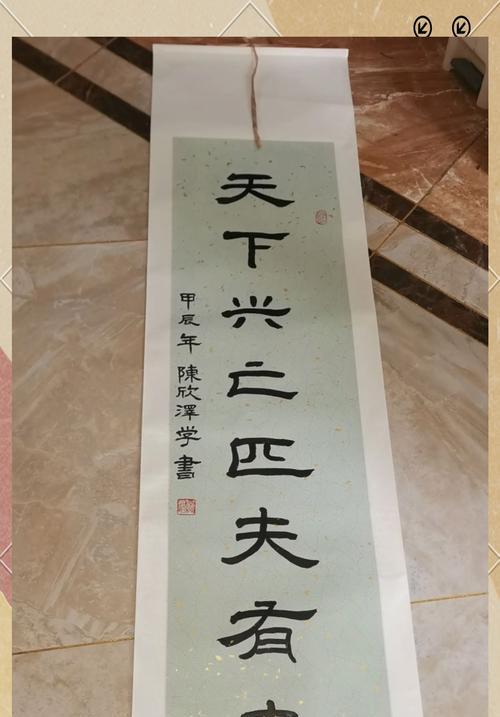 天下兴亡匹夫有
甲辰年陳欣澤学書